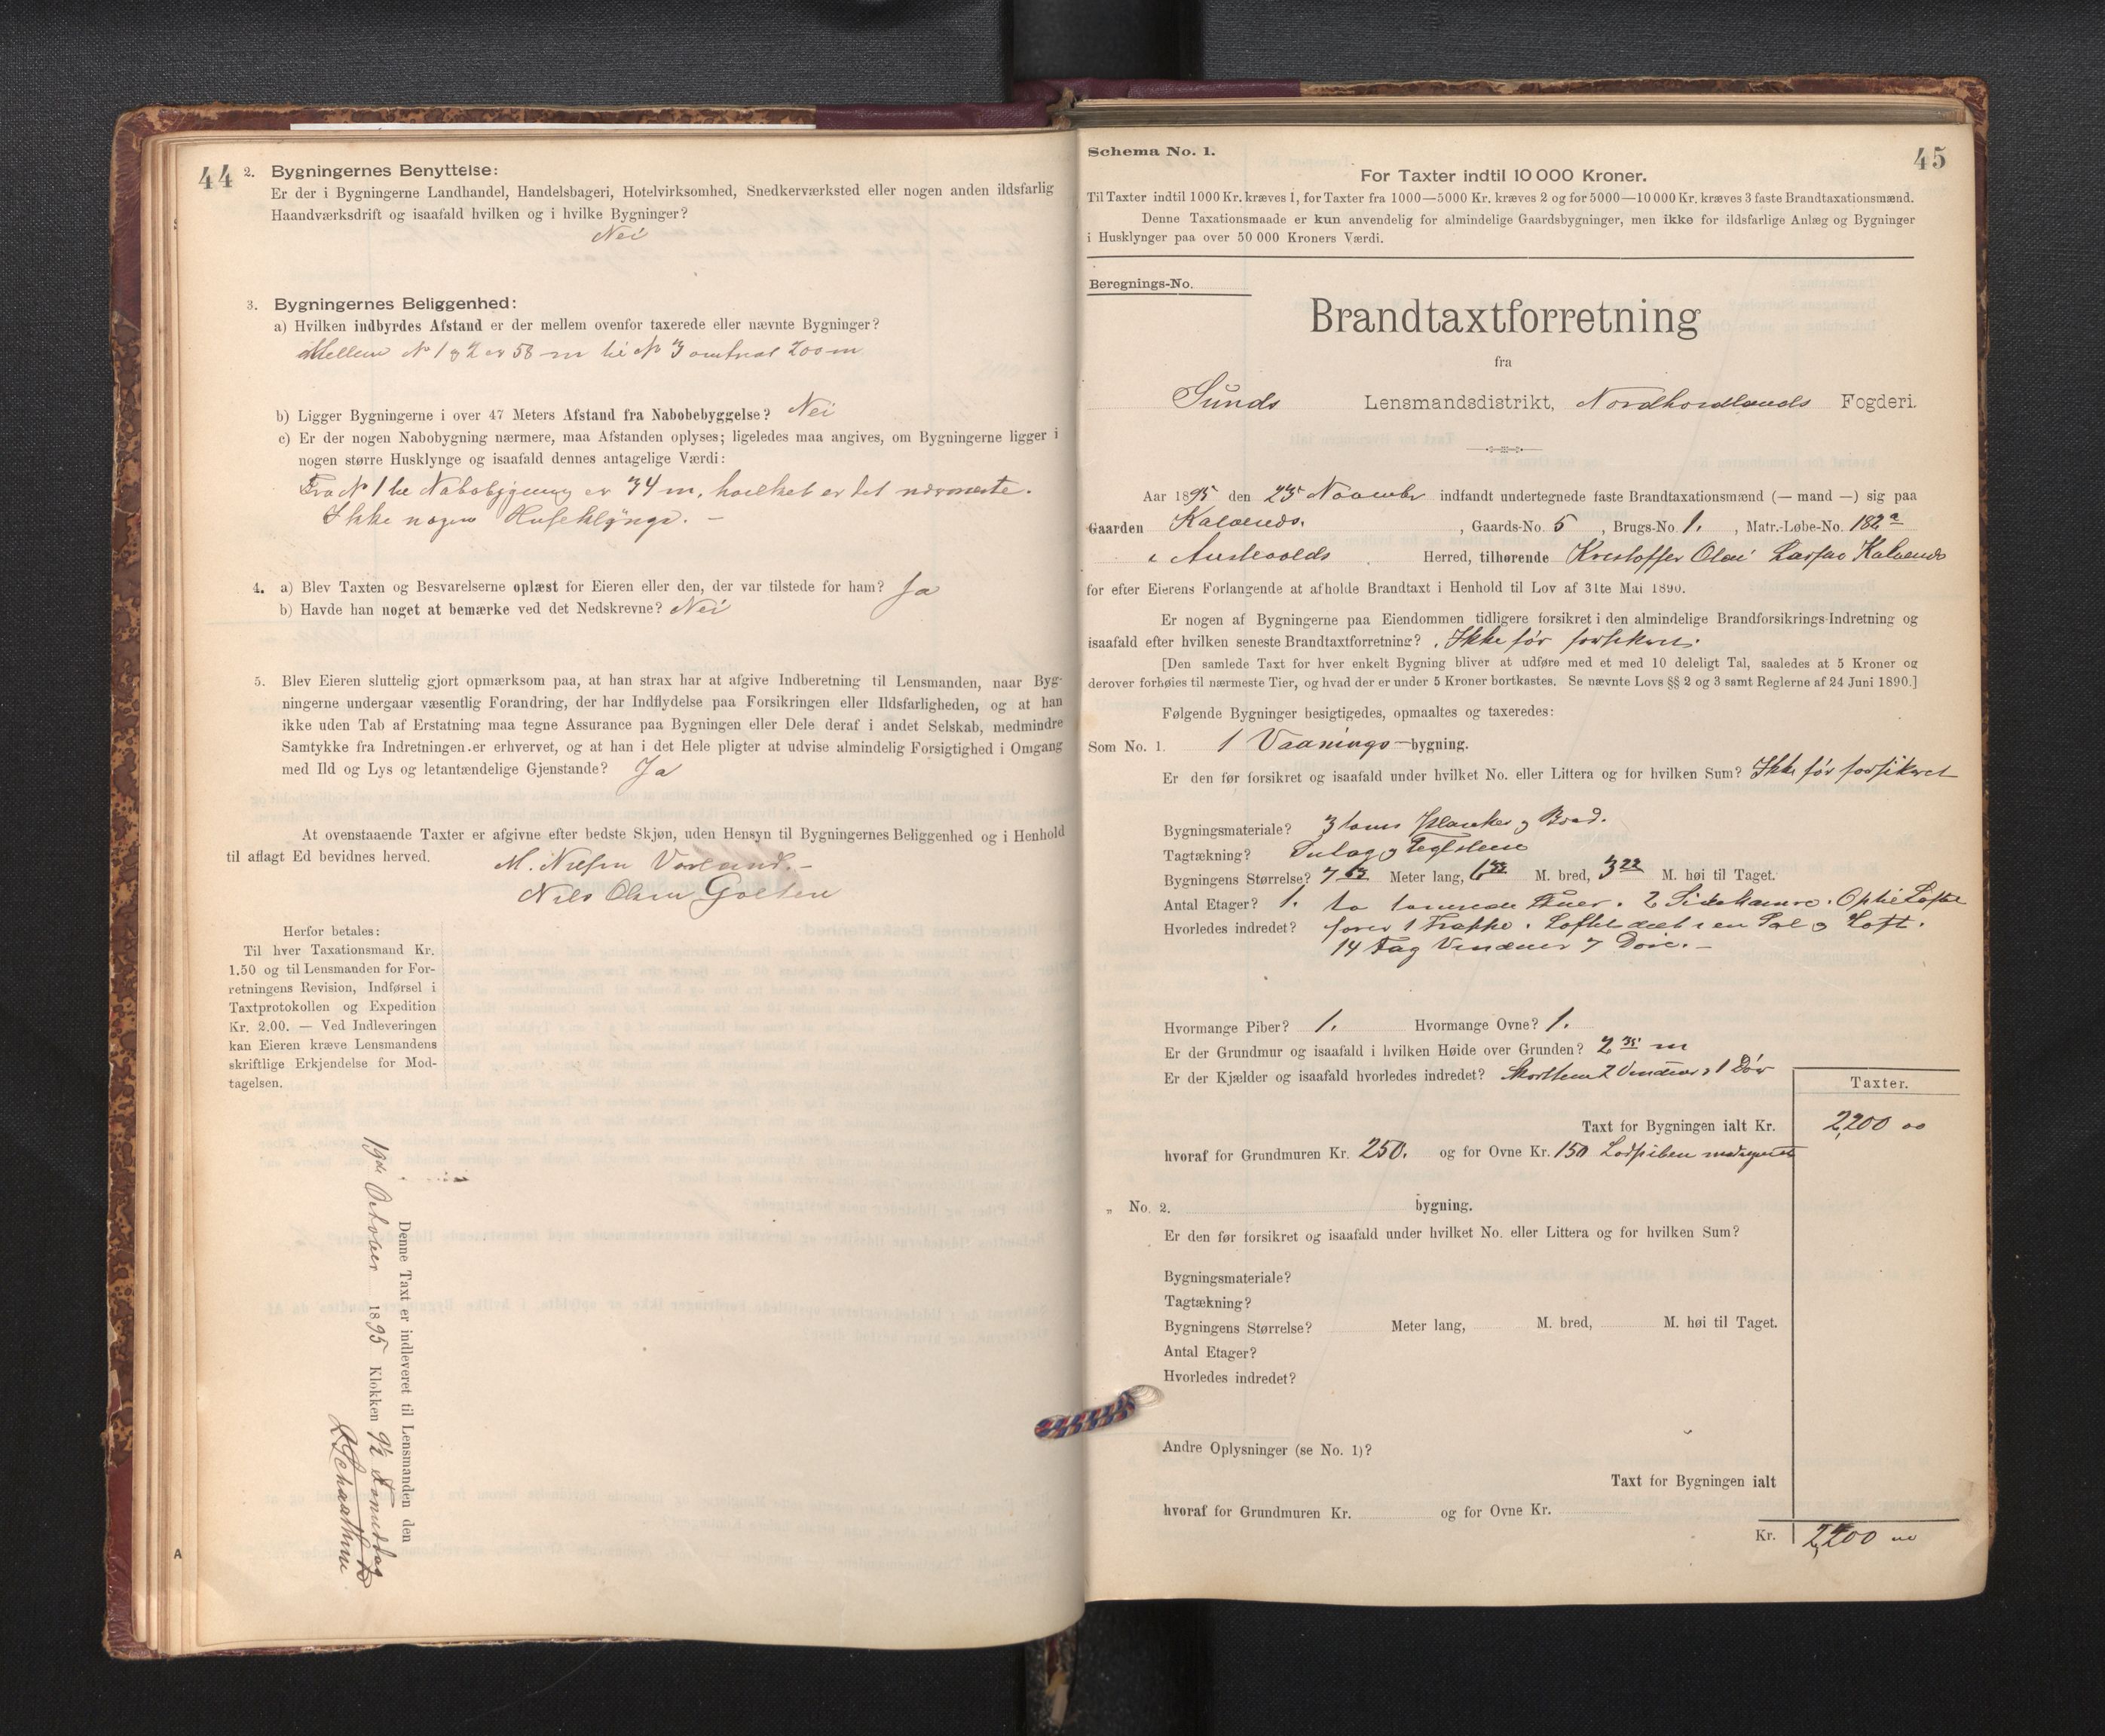 44
2. Bygningernes Benyttelse:
Er der i Bygningerne Landhandel, Handelsbageri, Hotelvirksomhed, Snedkerværksted eller nogen anden ildsfarlig
Haandværksdrift og isaafald hvilken og i hvilke Bygninger?
Nei
3. Bygningernes Beliggenhed:
a) Hvilken indbyrdes Afstand er der mellem ovenfor taxerede eller nævnte Bygninger?
Mellem No 1 og 2 er 58 m til No 3 omtrent 200 m
b) Ligger Bygningerne i over 47 Meters Afstand fra Nabobebyggelse? Nei
c) Er der nogen Nabobygning nærmere, maa Afstanden oplyses; ligeledes maa angives, om Bygningerne ligger i
nogen større Husklynge og isaafald dennes antagelige Værdi:
Fra No 1 til Nabobygning er 34 m, hvilket er det nærmeste.
Ikke nogen Huseklynge. —
4. a) Blev Taxten og Besvarelserne oplæst for Eieren eller den, der var tilstede for ham? Ja
b) Havde han noget at bemærke ved det Nedskrevne? Nei
5. Blev Eieren sluttelig gjort opmærksom paa, at han strax har at afgive Indberetning til Lensmanden, naar Byg-
ningerne undergaar væsentlig Forandring, der har Indflydelse paa Forsikringen eller Ildsfarligheden, og at han
ikke uden Tab af Erstatning maa tegne Assurance paa Bygningen eller Dele deraf i andet Selskab, medmindre
Samtykke fra Indretningen er erhvervet, og at han i det Hele pligter at udvise almindelig Forsigtighed i Omgang
med Ild og Lys og letantændelige Gjenstande? Ja
At ovenstaaende Taxter er afgivne efter bedste Skjøn, uden Hensyn til Bygningernes Beliggenhed og i Henhold
til aflagt Ed bevidnes herved.
M. Nilsen Vorland. —
Nils Olsen Golten
Herfor betales:
Til hver Taxationsmand Kr.
1.50 og til Lensmanden for For-
retningens Revision, Indførsel i
Taxtprotokollen og Expedition
Kr. 2.00. — Ved Indleveringen
kan Eieren kræve Lensmandens
skriftlige Erkjendelse for Mod-
tagelsen.
Denne Taxt er indleveret til Lensmanden den
19de October 1895 Klokken 9½ Formiddag
A
Schema No. 1.
45
For Taxter indtil 10 000 Kroner.
Til Taxter indtil 1000 Kr. kræves 1, for Taxter fra 1000—5000 Kr. kræves 2 og for 5000—10 000 Kr. kræves 3 faste Brandtaxationsmænd.
Denne Taxationsmaade er kun anvendelig for almindelige Gaardsbygninger, men ikke for ildsfarlige Anlæg og Bygninger
i Husklynger paa over 50 000 Kroners Værdi.
Beregnings-No.
Brandtaxtforretning
fra
Sunds Lensmandsdistrikt, Nordhordlands Fogderi.
Aar 1895 den 25 November indfandt undertegnede faste Brandtaxationsmænd (— mand —) sig paa
Gaarden Kalvenes. , Gaards-No. 5 , Brugs-No. 1. , Matr.-Løbe-No. 182 a
i Austevolds Herred, tilhørende Kristoffer Olai Larsen Kalvenes
for efter Eierens Forlangende at afholde Brandtaxt i Henhold til Lov af 31te Mai 1890.
Er nogen af Bygningerne paa Eiendommen tidligere forsikret i den almindelige Brandforsikrings-Indretning og
isaafald efter hvilken seneste Brandtaxtforretning? Ikke før forsikret.
[Den samlede Taxt for hver enkelt Bygning bliver at udføre med et med 10 deleligt Tal, saaledes at 5 Kroner og
derover forhøies til nærmeste Tier, og hvad der er under 5 Kroner bortkastes. Se nævnte Lovs §§ 2 og 3 samt Reglerne af 24 Juni 1890.]
Følgende Bygninger besigtigedes, opmaaltes og taxeredes:
Som No. 1. 1 Vaanings-bygning.
Er den før forsikret og isaafald under hvilket No. eller Littera og for hvilken Sum? Ikke før forsikret
Bygningsmateriale? 3 toms Planker og Bord.
Tagtækning? Sutag og Teglstene
Bygningens Størrelse? 7 Meter lang, 6 M. bred, 3 22 M. høi til Taget.
Antal Etager? 1. to tømrede Stuer. 2 Sidekamre. Op til Loftet
Hvorledes indredet? fører 1 Trappe. Loftet delt i en Sal og Loft.
14 Fag Vinduer 7 Døre. —
Hvormange Piber? 1. Hvormange Ovne? 1.
Er der Grundmur og isaafald i hvilken Høide over Grunden? 2 35 m
Er der Kjælder og isaafald hvorledes indredet? 2 Vinduer og 1 Dør
Taxter.
Taxt for Bygningen ialt Kr. 2,200 00
hvoraf for Grundmuren Kr. 250. og for Ovne Kr. 150 Lodpiben medregnet
„ No. 2. bygning.
Er den før forsikret og isaafald under hvilket No. eller Littera og for hvilken Sum?
Bygningsmateriale?
Tagtækning?
Bygningens Størrelse? Meter lang, M. bred, M. høi til Taget.
Antal Etager?
Hvorledes indredet?
Andre Oplysninger (se No. 1)?
Taxt for Bygningen ialt
hvoraf for Grundmuren Kr. og for Ovne Kr.
Kr. 2,200 00